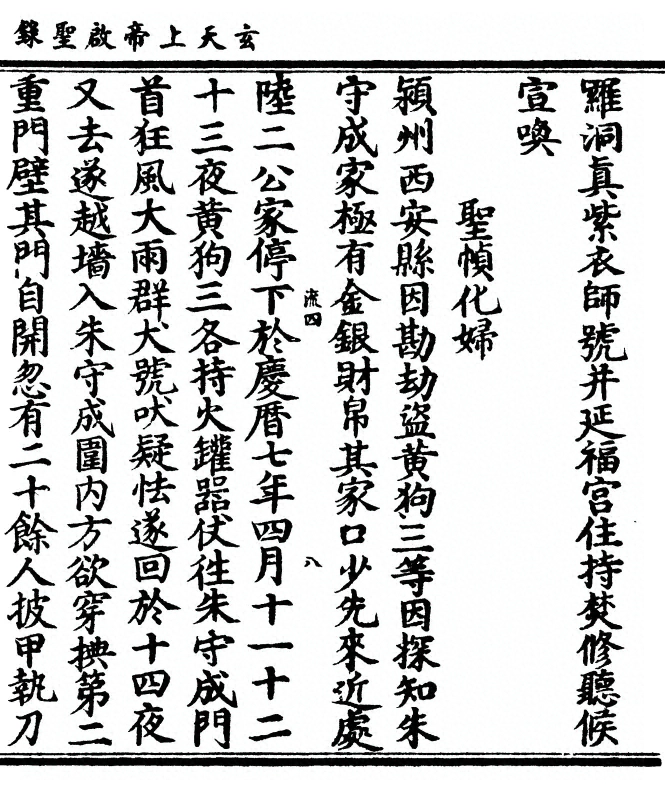 玄天上帝啟聖錄
羅洞真紫衣師號并延福宮住持焚修聽候
宣喚
聖幀化婦
潁州西安縣因勘劫盜黃狗三等因探知朱
守成家極有金銀財帛其家口少先來近處
流四
八
陸二公家停下於慶曆七年四月十一十二
十三夜黃狗三各持火鑵器仗徃朱守成門
首狂風大雨群犬號吠疑怯遂回於十四夜
又去遂越墻入朱守成圍内方欲穿㨃第二
重門壁其門自開忽有二十餘人披甲執刀